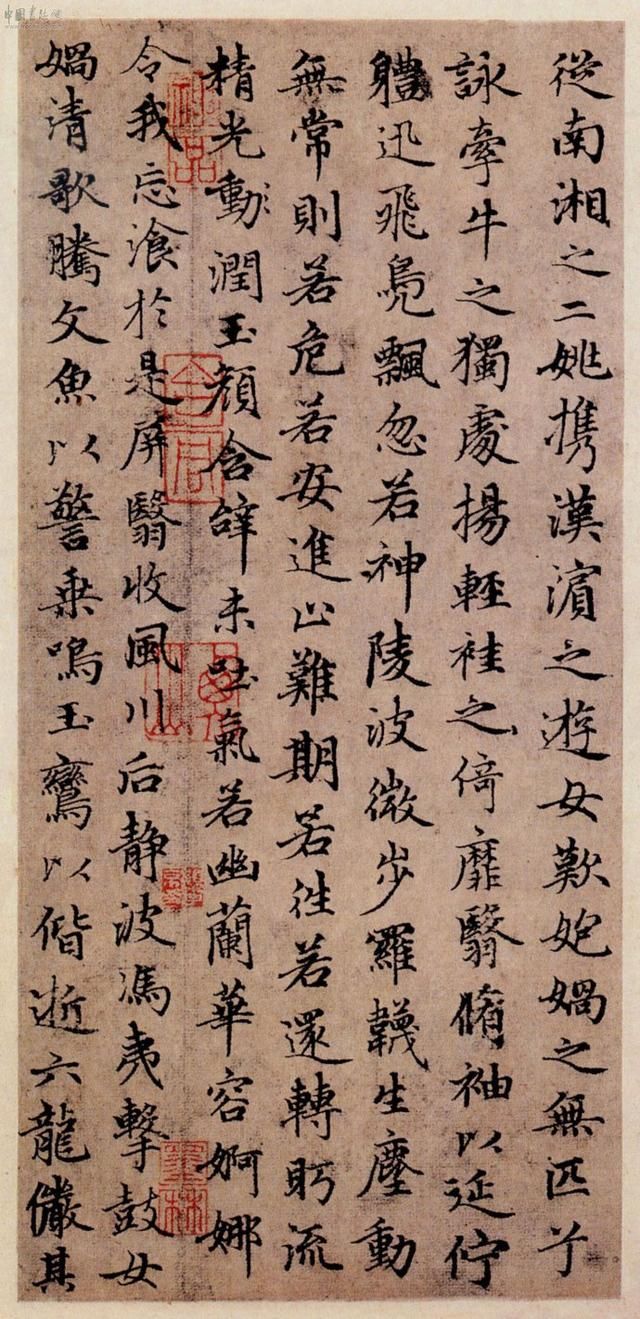 從南湘之二姚携漢濱之遊女歎妑媧之無匹兮
詠牽牛之獨處揚輕袿之倚靡翳脩袖以延佇
軆迅飛鳧飄忽若神陵波微步羅韈生塵動
無常則若危若安進止難期若往若還轉眄流
精光動潤玉顏含辭未吐氣若幽蘭華容婀娜
令我忘飡於是屏翳收風川后静波馮夷擊鼓女
媧清歌騰文魚以警乘鳴玉鸞以偕逝六龍儼其
神品
墨林